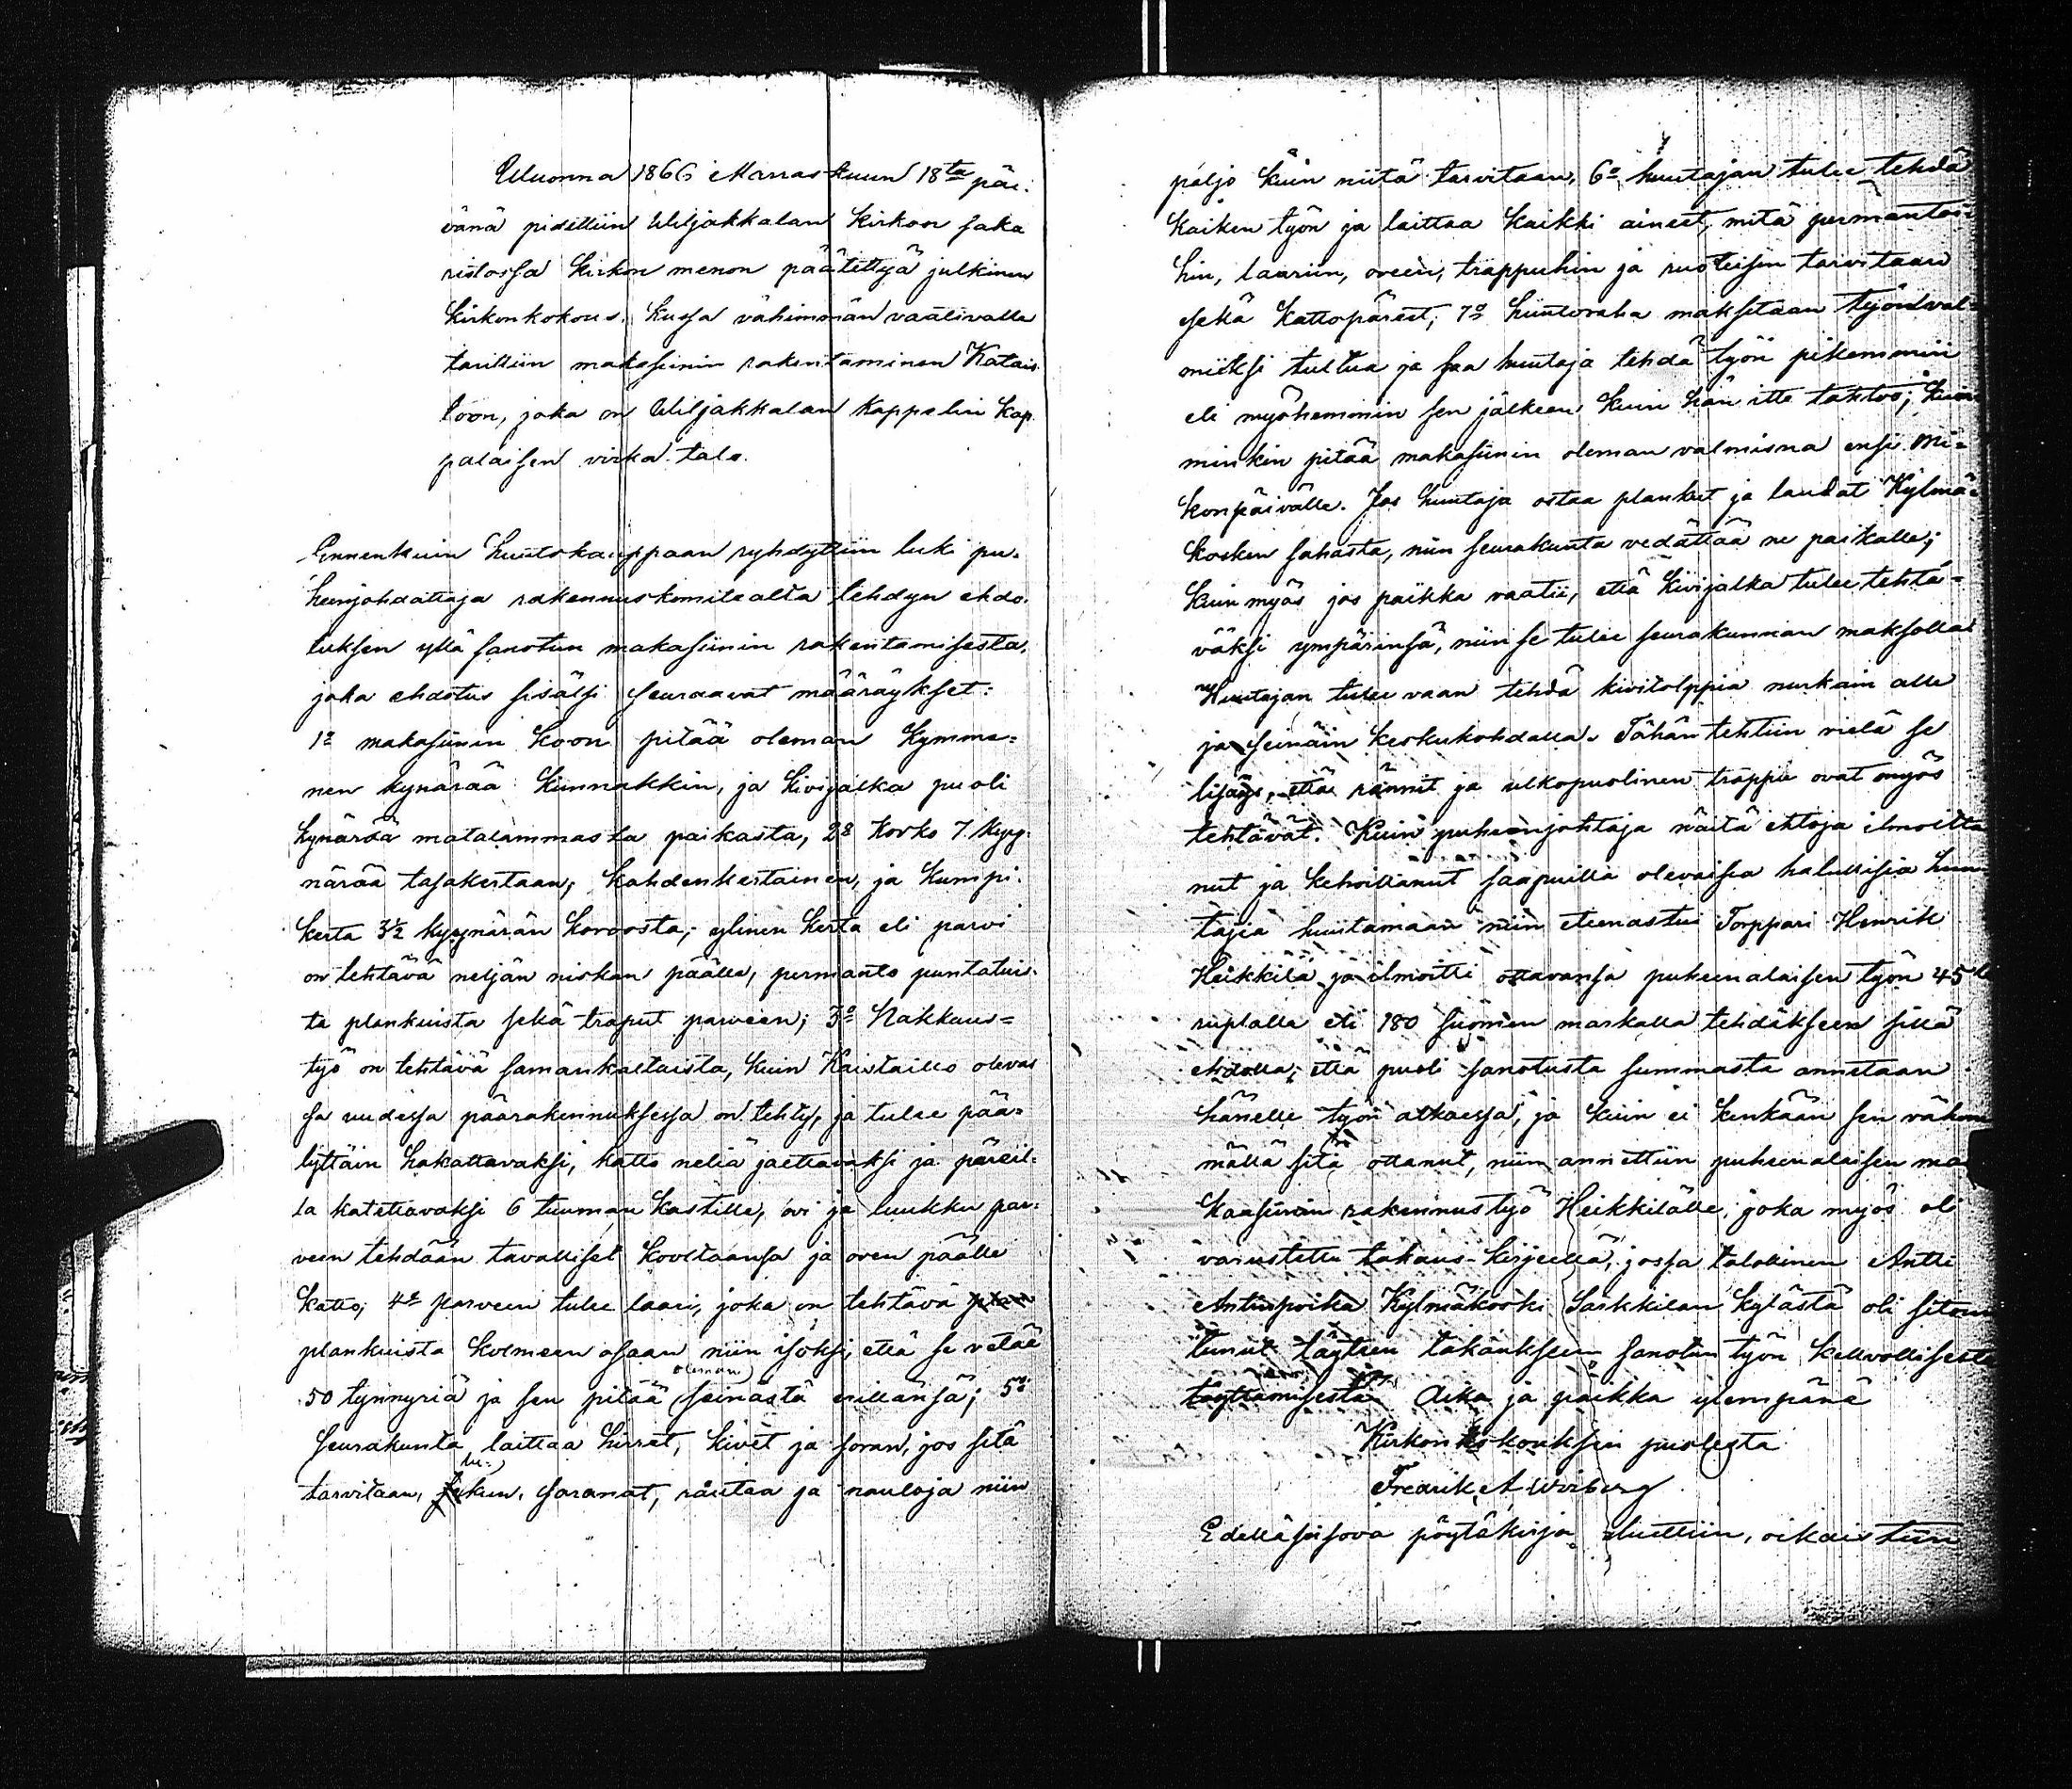 Wuonna 1866 Marraskuun 18ta päi-
vänä pidettiin Wiljakkalan Kirkon saka
ristossa Kirkon menon päätettyä julkinen
Kirkonkokous. Kussa vähimmän vaativalle
tarittiin makasiinin rakentaminen Katais
toon, joka on Wiljakkalan Kappelin Kap
palaisen virka talo.
Ennenkuin huutokauppaan ryhdyttiin luki pu-
heenjohdattaja rakennuskomitealta tehdyn ehdo-
tuksen yllä sanotun makasiinin rakentamisesta,
joka ehdotus sisälsi seuraavat määräykset:
1o makasiinin Koon pitää oleman Kymme=
nen kynärää Kunnakkin, ja Kivijalka puoli
kynärää matalammasta paikasta, 2o Korko 7. kyy-
närää tasakertaan, Kahdenkertainen, ja Kumpi-
kerta 3½ kyynärän Korosta, ylinen Kerta eli parvi
on tehtävä neljän niskan päälle, permanto puntatuis-
ta plankuista sekä traput parveen; 3o Nakkaus=
työ on tehtävä samankaltaista, Kuin Kaistaille olevas
sa uudessa päärakennuksessa on tehty, ja tulee pää=
lyttäin hakattavaksi, katto neliä jaettavaksi ja päreil-
la katettavaksi 6 tuuman Kastille, ovi ja luukku par-
veen tehdään tavalliset Kooltaansa ja oven päälle
Katto; 4o parveen tulee laari, joka on tehtävä plan
plankuista Kolmeen osaan niin isoksi, että se vetää
50 tynnyriä ja sen pitää oleman seinästä erillänsä; 5o
Seurakunta laittaa hirret, Kivet ja soran, jos sitä
tarvitaan, lukun, saranat, rautaa ja nauloja niin
paljo Kuin niitä tarvitaan, 6o huutajan tulee tehdä
Kaiken työn ja laittaa Kaikki aineet, mitä permantoi=
hin, laariin, oveen, trappuhin ja ruoteisin tarvitaan
sekä Kattopäreet; 7o huutoraha maksetaan työn val=
miiksi tultua ja saa huutaja tehdä työn pikemmin
eli myöhemmin sen jälkeen Kuin hän itte tahtoo; Kuin
minkin pitää makasiinin oleman valmisna ensi Mi=
konpäivälle. Jos huutaja ostaa plankut ja laudat Kylmä=
kosken sahasta, niin seurakunta vedättää ne paikalle;
Kuin myös jos paikka vaatii, että Kivijalka tulee tehtä=
väksi ympärinsä, niin se tulee seurakunnan maksolla
Huutajan tulee vaan tehdä kivitolppia nurkain alle
ja seinäin keskukohdalle. Tähän tehtiin vielä se
lisäys, että rännit ja ulkopuolinen trappu ovat myös
tehtävät. Kuin puheenjohtaja näitä ehtoja ilmoitta
nut ja kehoittanut saapuilla olevaisia halullisia huu
tajia huutamaan niin eteenastui Torppari Henrik
Heikkilä ja ilmoitti ottavansa puheenalaisen työn 45
ruplalla eli 180 suomen markalla tehdäkseen sillä
ehdolla, että puoli sanotusta summasta annetaan
hänelle työn alkaessa, ja Kuin ei Kenkään sen vähem
mällä sitä ottanut, niin annettiin puheenalaisen ma
kaasiinin rakennustyö Heikkilälle, joka myös oli
varustettu takaus-kirjeellä, jossa talollinen Antti
Antinpoika Kylmäkoski Sarkkilan kylästä oli sitou
tunut täyteen takaukseen sanotun työn Kelvollisesta
täyttämisestä Aika ja paikka ylempänä
Kirkonkokouksen puolesta
Fredrik A Wiberg
Edelläseisova pöytäkirja luettiin, oikaistiin